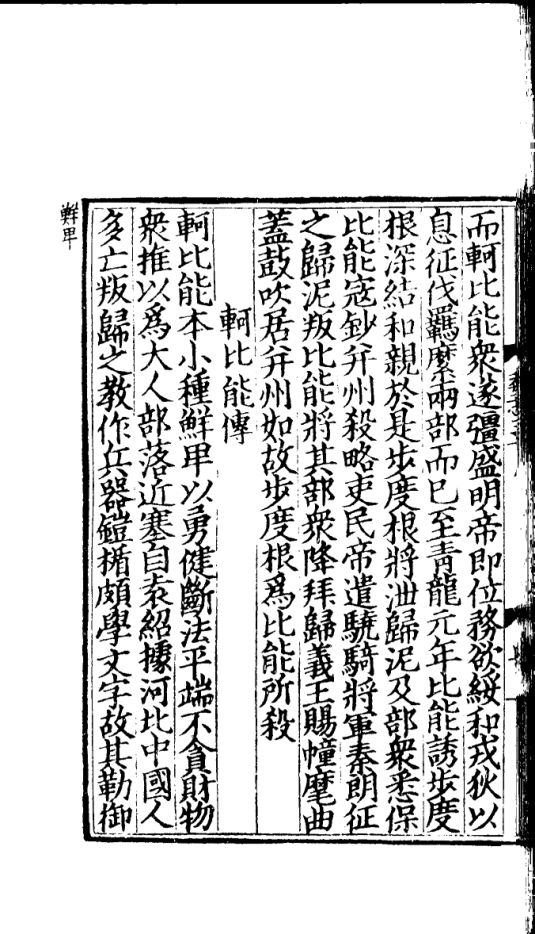 而軻比能衆遂彊盛明帝即位務欲綏和戎狄以
息征伐羈縻兩部而已至青龍元年比能誘步度
根深結和親於是步度根將泄歸泥及部衆悉保
比能寇鈔幷州殺略吏民帝遣驍騎將軍秦朗征
之歸泥叛比能將其部衆降拜歸義王賜幢麾曲
蓋鼓吹居幷州如故步度根爲比能所殺
軻比能傳
軻比能本小種鮮卑以勇健斷法平端不貪財物
衆推以爲大人部落近塞自袁紹據河北中國人
多亡叛歸之教作兵器鎧楯頗學文字故其勒御
鮮卑